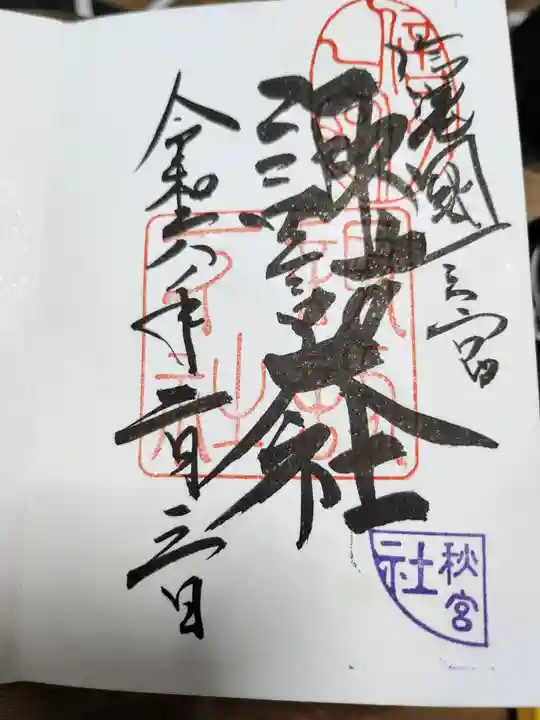 信濃國一之宮
諏訪大社
令和六年二月三日
秋宮
社